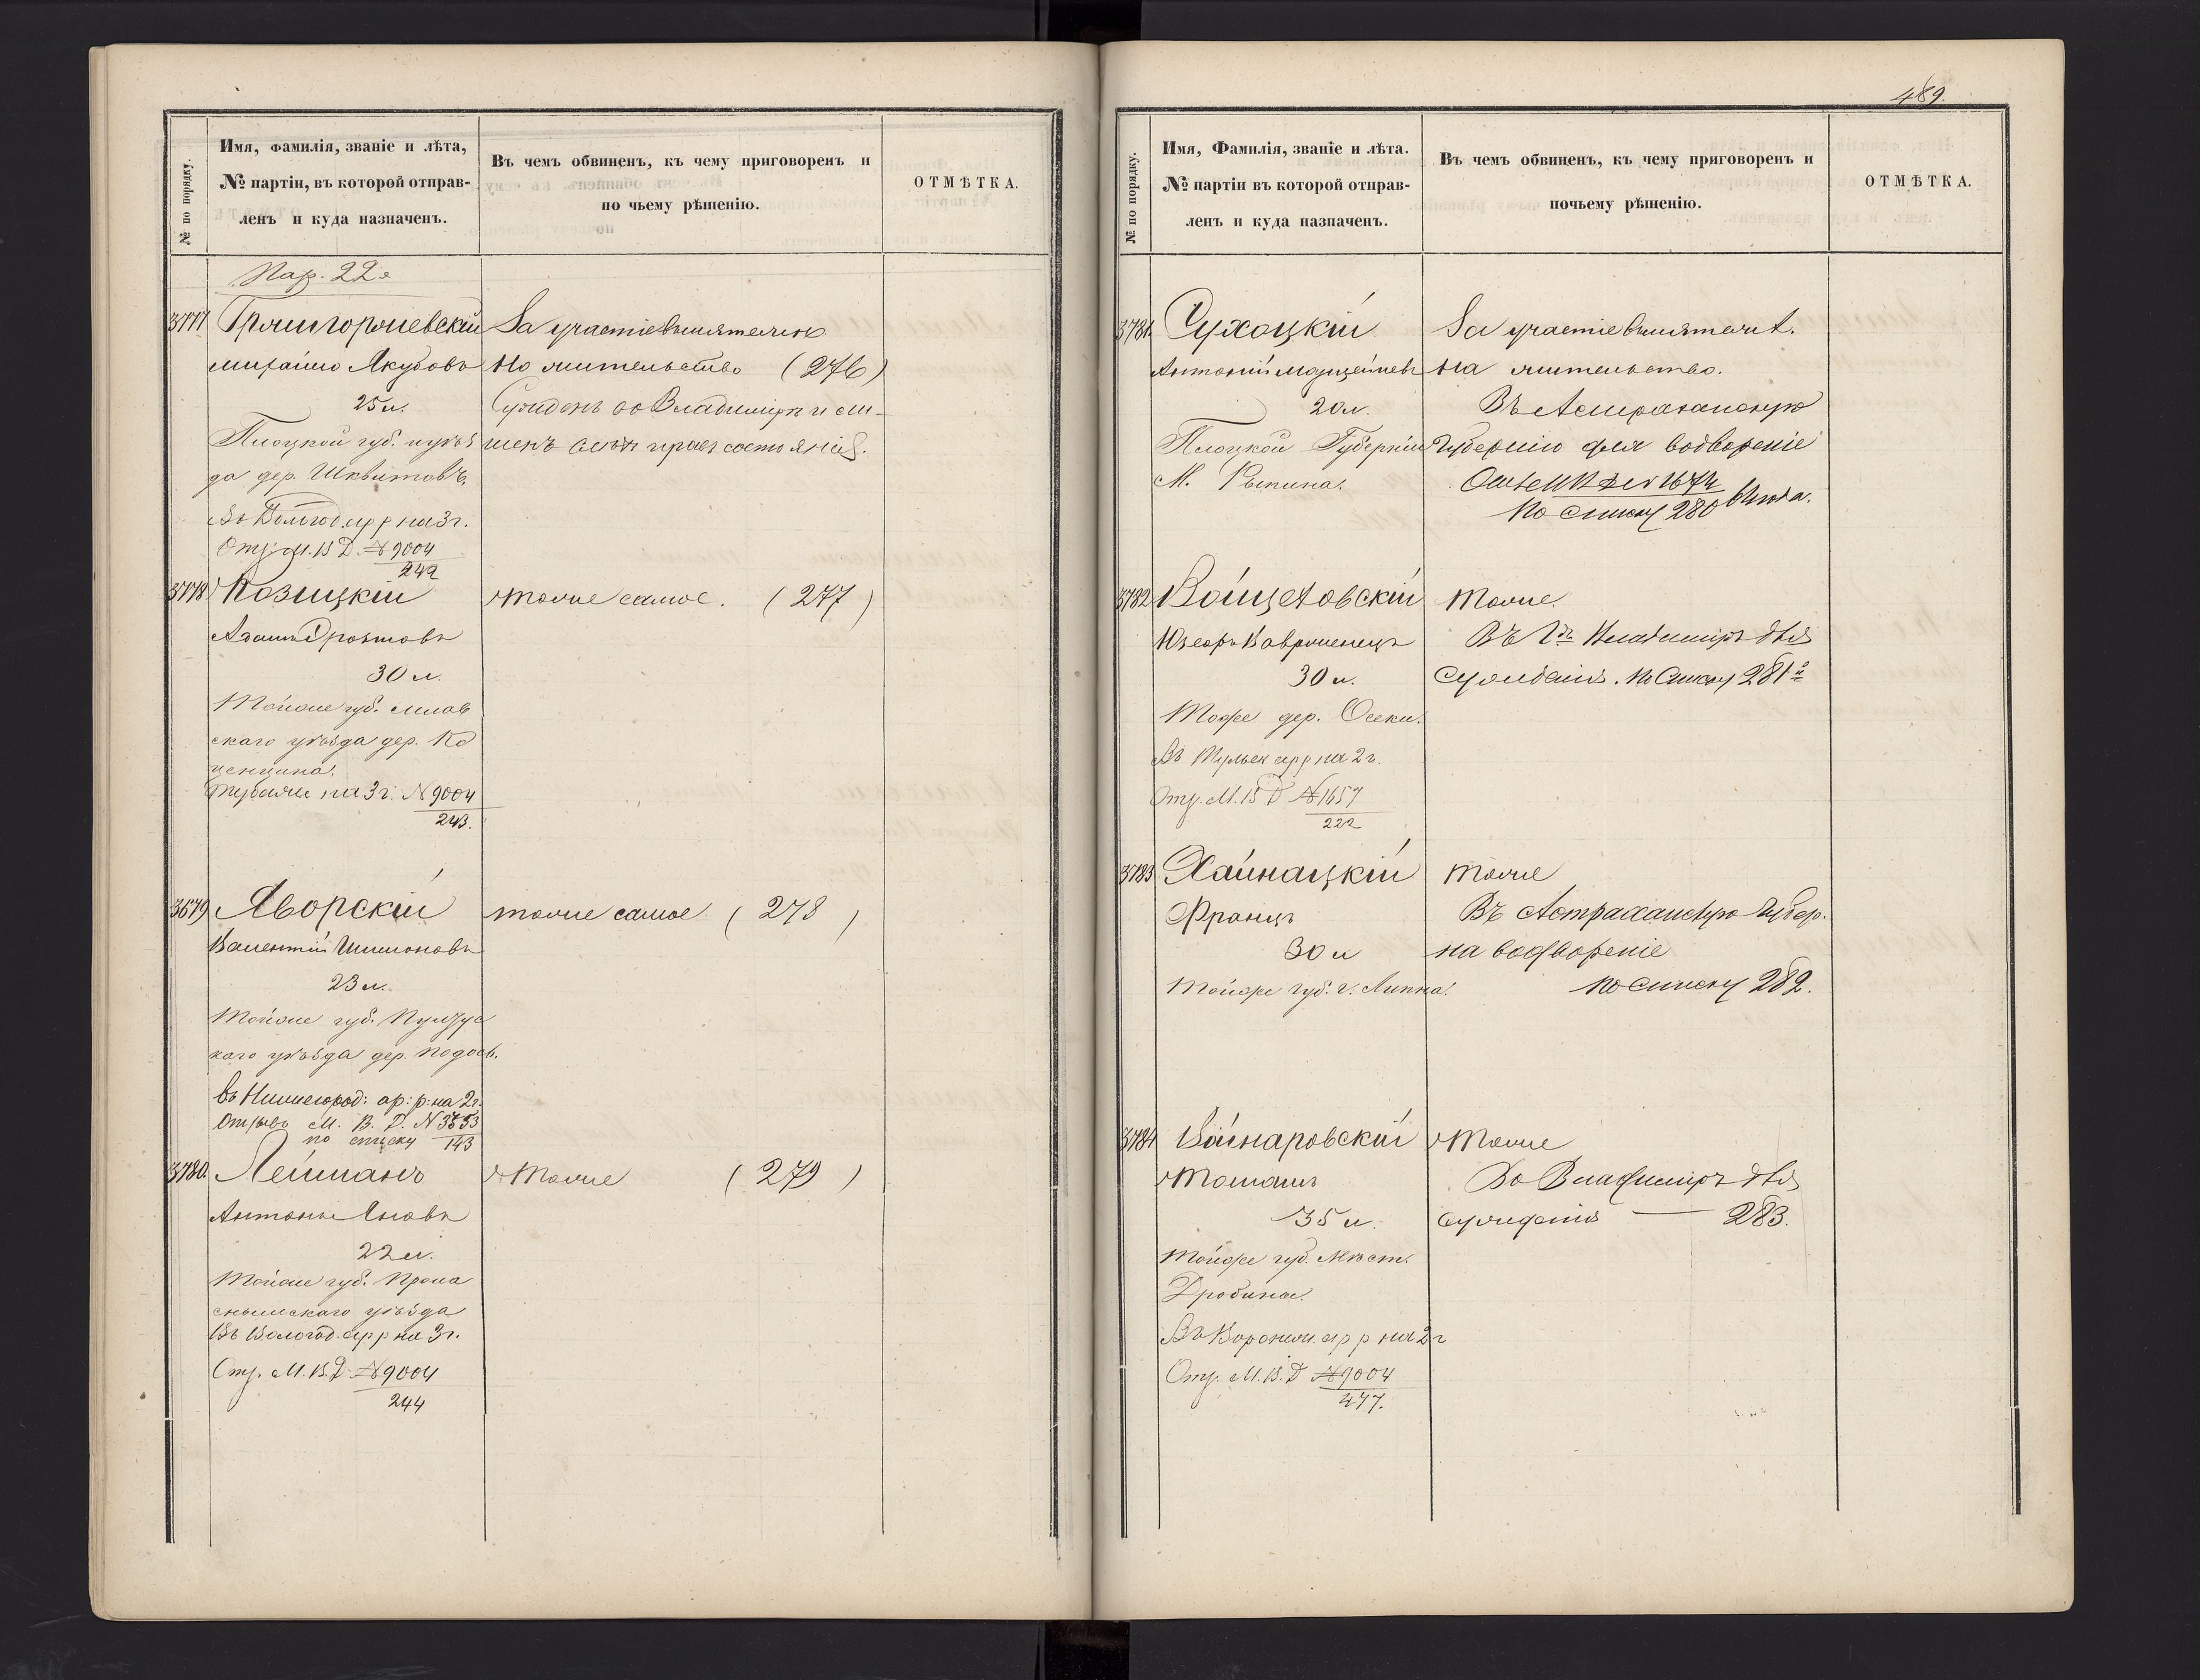 № по порядку.
Имя, фамилія, званіе и лѣта,
№ партіи, въ которой отправ-
ленъ и куда назначенъ.
Въ чемъ обвиненъ, къ чему приговоренъ и
по чьему рѣшенію.
ОТМѢТКА.
Пар. 22я
3777
михайло Якубовъ
25 л.
Плоцкой губ. и уѣз
да дер.
на 3 г.
М. В. Д. № 9004
242
За участіе въ мятеж
но жительство (276)
Сужденъ во Владимірѣ и ли-
шенъ всѣхъ правъ состоянія.
3778
Козицкій
Адамъ
30 л.
Тойже губ. Млав
скаго уѣзда дер. Ко
ценцина.
туда же на 3 г. № 9004
243.
тоже самое. (277)
3679
Яворскій
Валентій Шимоновъ
23 л.
Тойже губ. Пултус
каго уѣзда дер. Подось.
въ Нижегород: ар: р: на 2 г.
Отзывъ М. В. Д. № 3753
по списку 143
тоже самое (278)
3780.
Лейманъ
Антоны Яновъ
22 л.
Тойже губ. Прона
снышскаго уѣзда
Въ Вологод. ар р на 3 г.
Отз. М. В. Д. № 9004
244
тоже (279)
489.
№ по порядку.
Имя, Фамилія, званіе и лѣта.
№ партіи въ которой отправ-
ленъ и куда назначенъ.
Въ чемъ обвиненъ, къ чему приговоренъ и
почьему рѣшенію.
ОТМѢТКА.
3781.
Сухоцкій
Антоній
20 л.
Плоцкой Губерніи
М. Рыпина.
За участіе въ мятеж.
на жительство.
Въ Астраханскую
губернію для водвореніе
По списку 280
3782
Войцеховскій
Юзефъ Вавринецъ
30 л.
Тоже дер. Осеки.
Въ Тульск ар р на 2 г.
Отз. М. В. Д № 1657
222
тоже
Въ Гдъ Владиміръ для
сужденія. по списку 281й
3783
Хайнацкій
Францъ
30 л
Тойже губ. г. Липна.
тоже
Въ Астраханскую Губер.
на водвореніе
по списку 282.
3784
Войнаровскій
Томашъ
35 л.
Тойже губ. Мѣст.
Дробина.
Въ Воронеж. ар р на 2 г
Отз. М. В. Д № 9004
477.
Тоже
Во Владиміръ для
сужденія — 283.